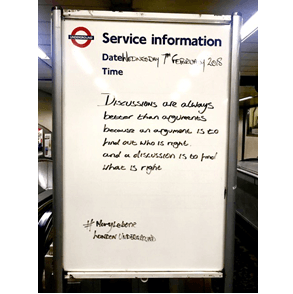 UNDERGROUND
Service information
Date WEDNESDAY 7TH FEBRUARY 2018
Time
DISCUSSIONS ARE ALWAYS
better than arguments
because an argument is to
find out who is right
and a discussion is to find
what is right
#Marylebone
LONDON UNDERGROUND